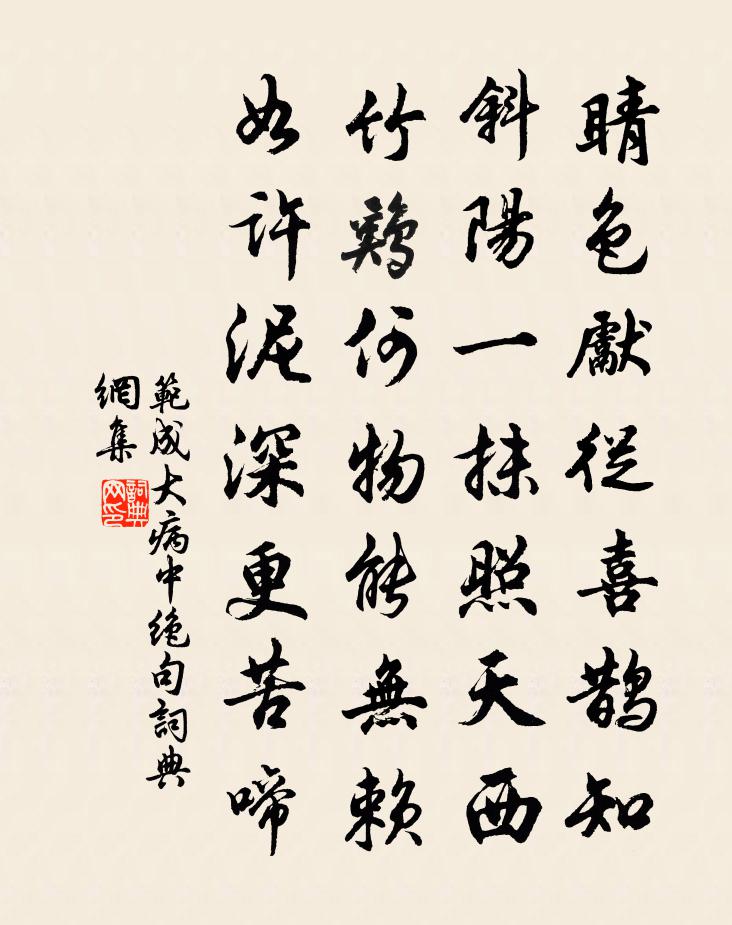 晴色獻從喜鵲知
斜陽一抹照天西
竹鷄何物能無賴
如許泥深更苦啼
範成大病中絕句詞典
網集
詞典
网印